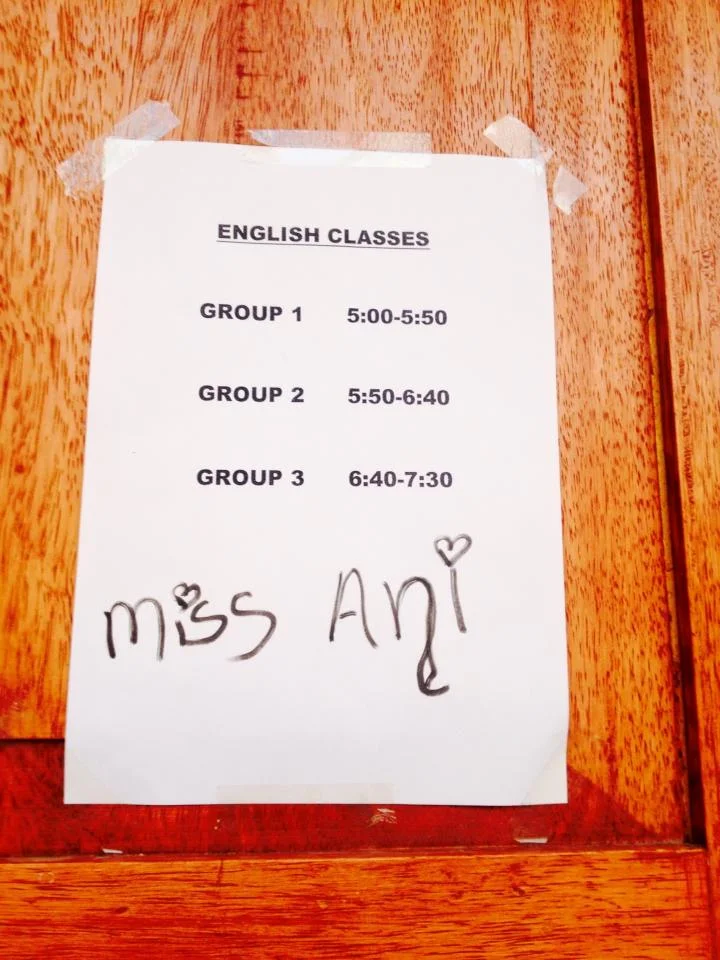 ENGLISH CLASSES
GROUP 1 5:00-5:50
GROUP 2 5:50-6:40
GROUP 3 6:40-7:30
miss Ani